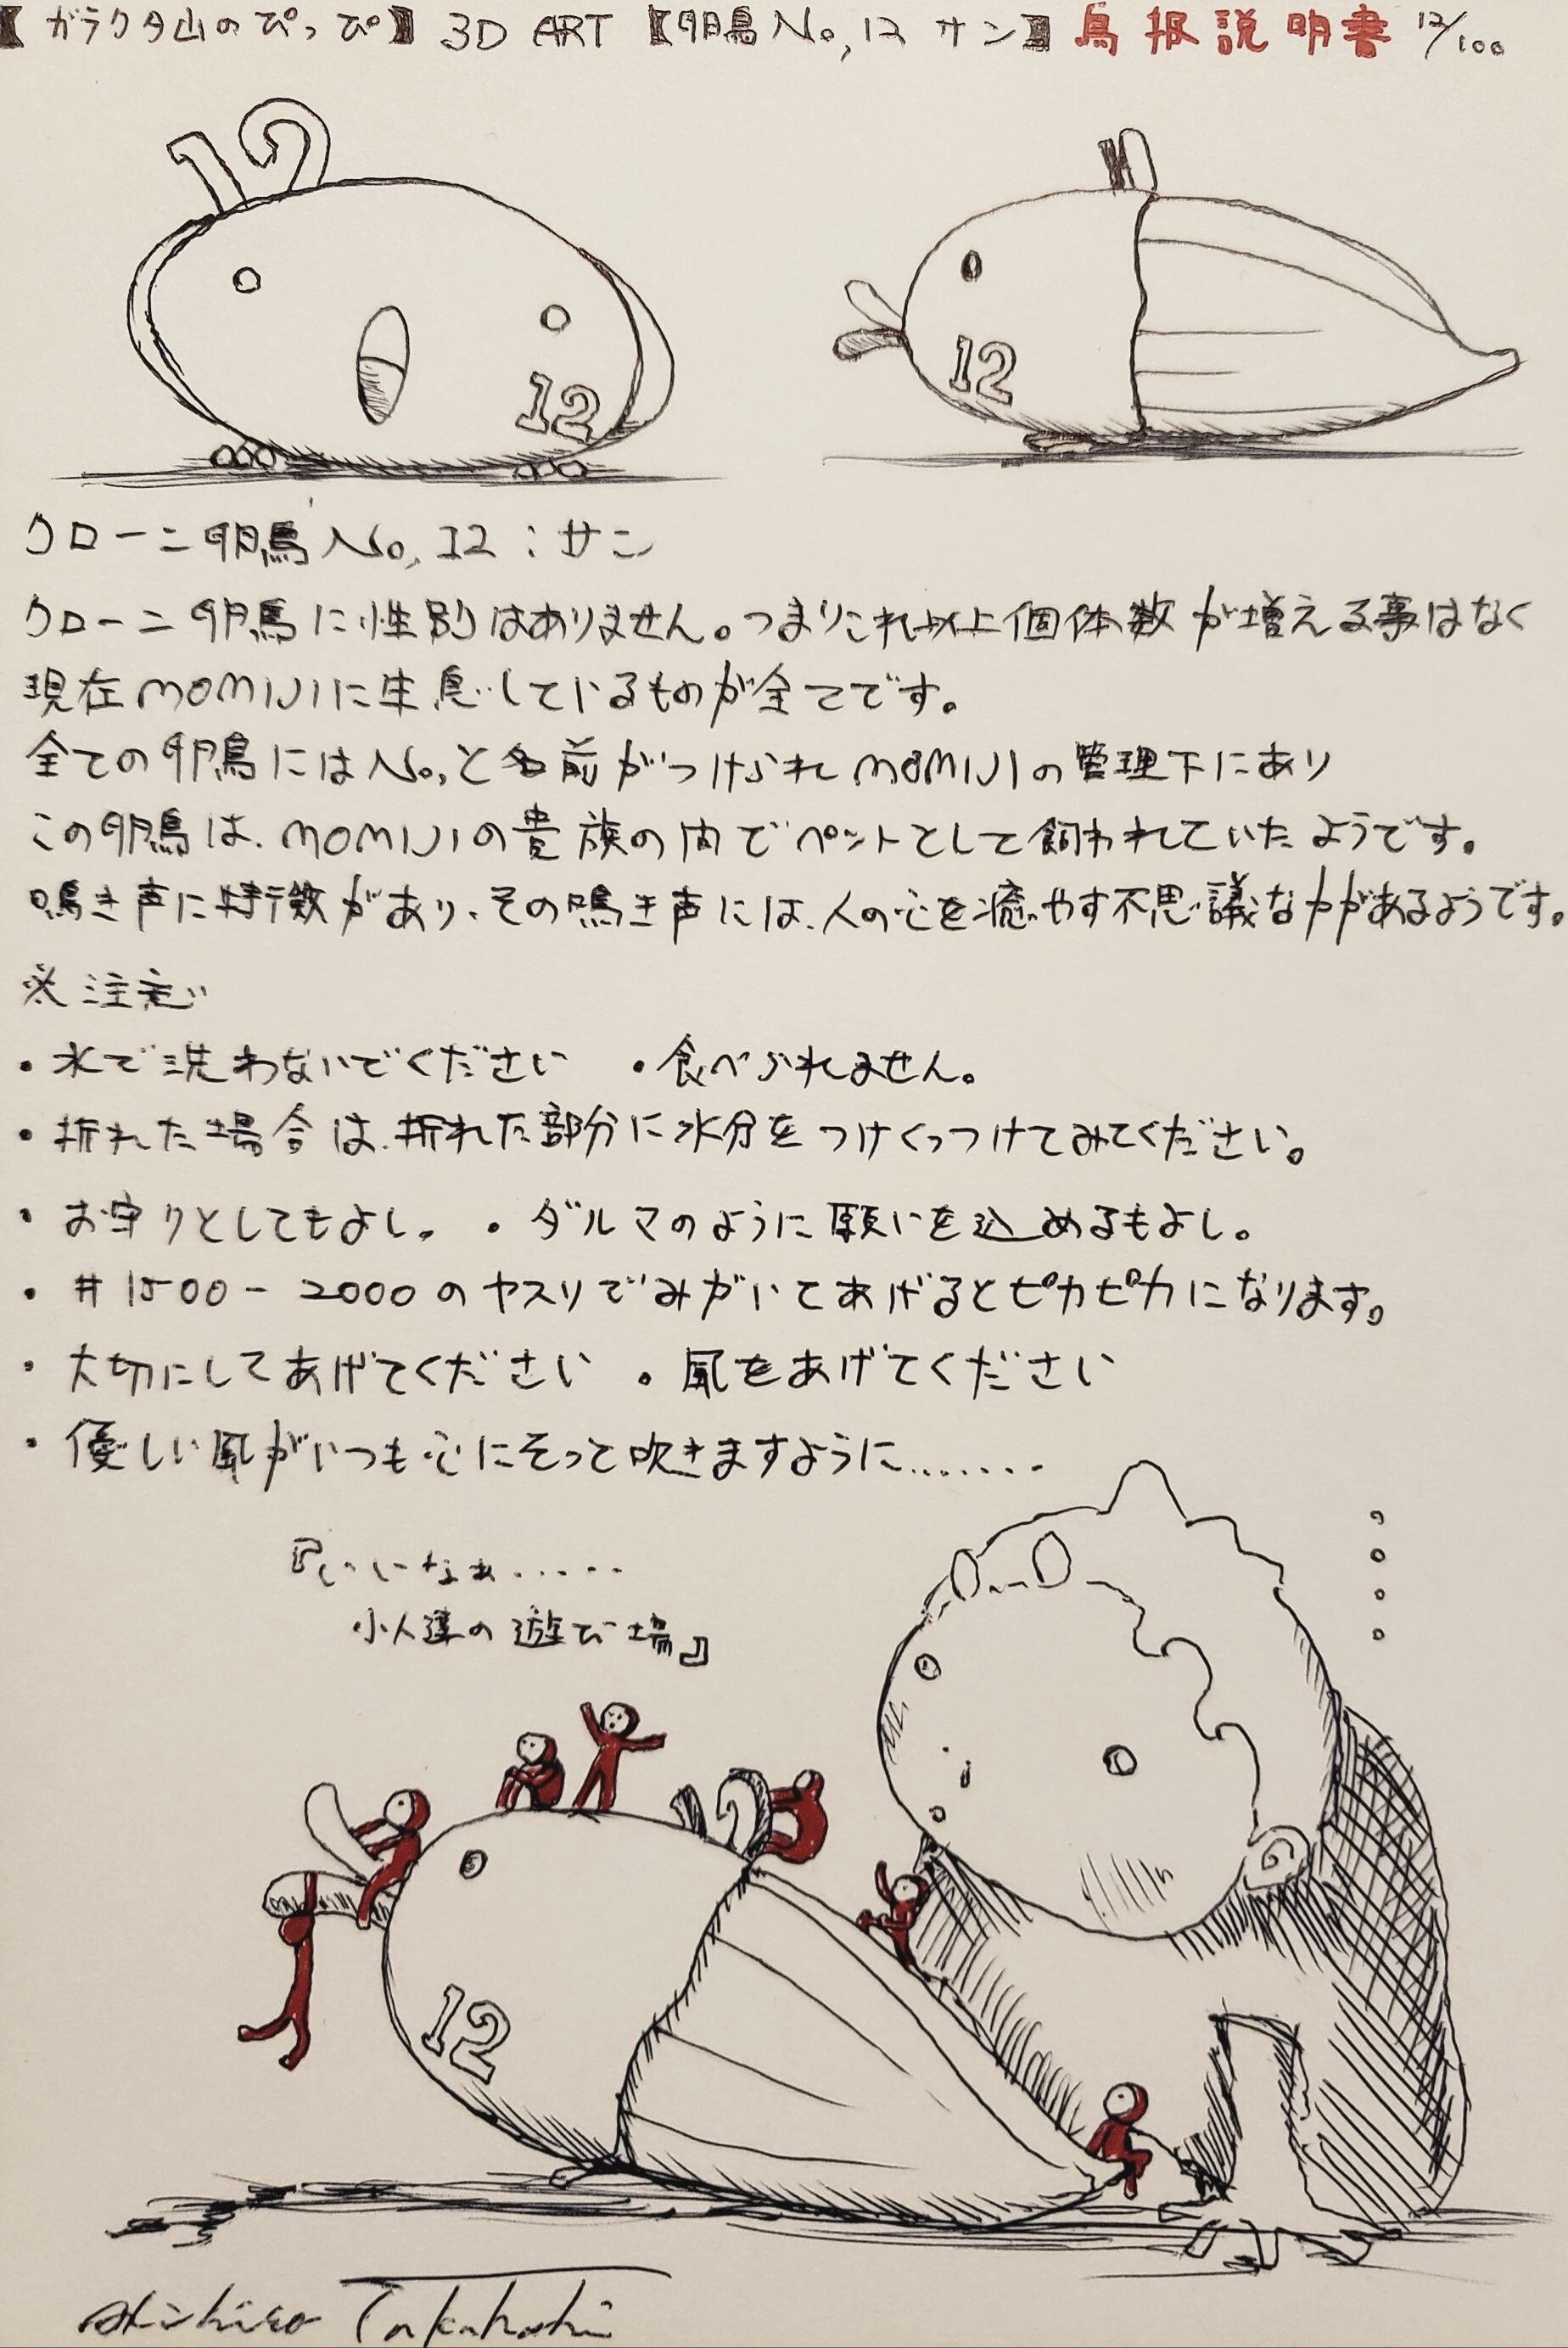 【ガラクタ山のぴっぴ】 3D ART 【卵鳥No,12 サン】 鳥扱説明書 12/100
12
12
12
クローン卵鳥No,12:サン
クローン卵鳥に性別はありません。つまりこれ以上個体数が増える事はなく
現在MOMIJIに生息しているものが全てです。
全ての卵鳥にはNo,と名前がつけられMOMIJIの管理下にあり
この卵鳥は、MOMIJIの貴族の内でペットとして飼われていたようです。
鳴き声に特徴があり、その鳴き声には、人の心を癒やす不思議な力があるようです。
※注意
・水で洗わないでください ・食べられません。
・折れた場合は、折れた部分に水分をつけくっつけてみてください。
・お守りとしてもよし。 ・ダルマのように願いを込めるもよし。
・#1500-2000のヤスリでみがいてあげるとピカピカになります。
・大切にしてあげてください ・風をあげてください
・優しい風がいつも心にそって吹きますように.......
『いいなぁ.....
小人達の遊び場』
12
12
Akihiro Takahashi